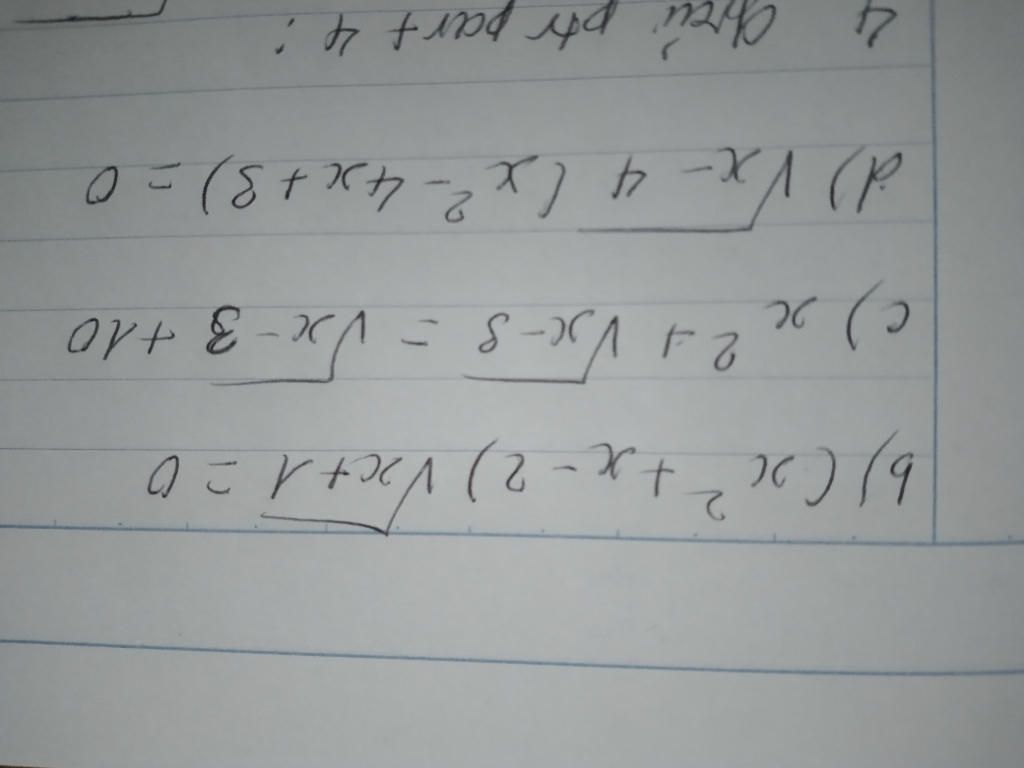 b) (x² + x - 2) √(x+1) = 0
c) x² + √(x-3) = √(x-3) + 10
d) √(x-4) (x² - 4x + 3) = 0
4 Giải ptr part 4 :